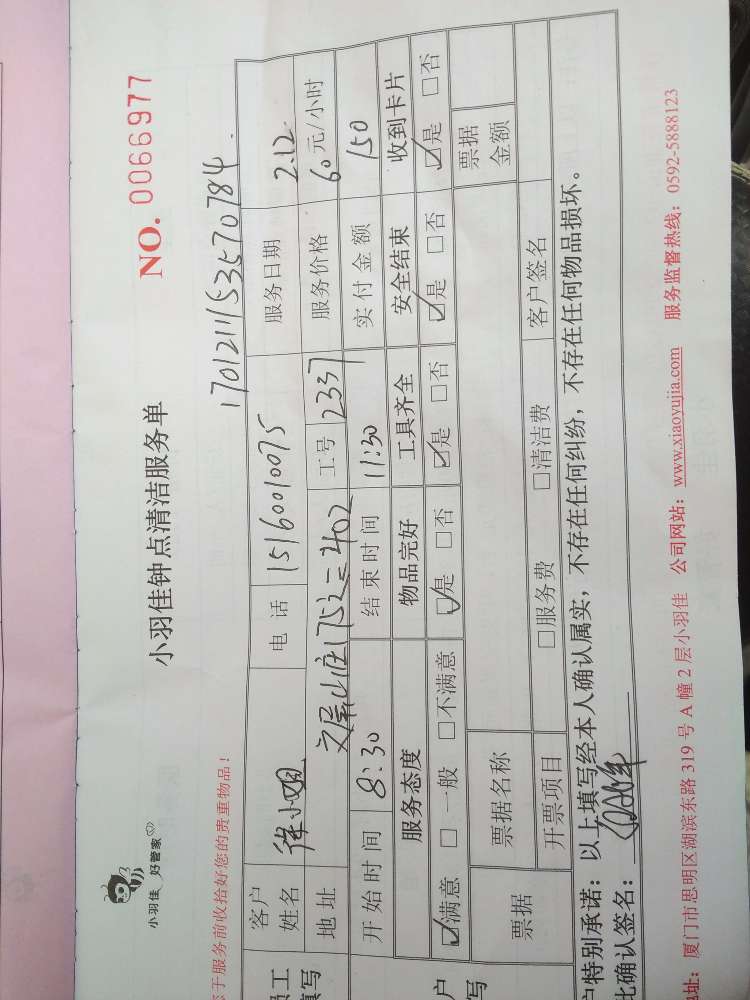 小羽佳 好管家
小羽佳钟点清洁服务单
NO. 0066977
于服务前收拾好您的贵重物品!
1701211153570784
客户姓名 徐小姐 电话 15160010075 服务日期 2.12
地址 文屏山庄175之二402 工号 2337 服务价格 60元/小时
开始时间 8:30 结束时间 11:30 实付金额 150
服务态度 物品完好 工具齐全 安全结束 收到卡片
☑满意 □一般 □不满意 ☑是 □否 ☑是 □否 ☑是 □否 ☑是 □否
票据 票据名称 票据金额
开票项目 □服务费 □清洁费 客户签名
户特别承诺:以上填写经本人确认属实,不存在任何纠纷,不存在任何物品损坏。
此确认签名:
地址:厦门市思明区湖滨东路319号A幢2层小羽佳 公司网站:www.xiaoyujia.com 服务监督热线:0592-5888123